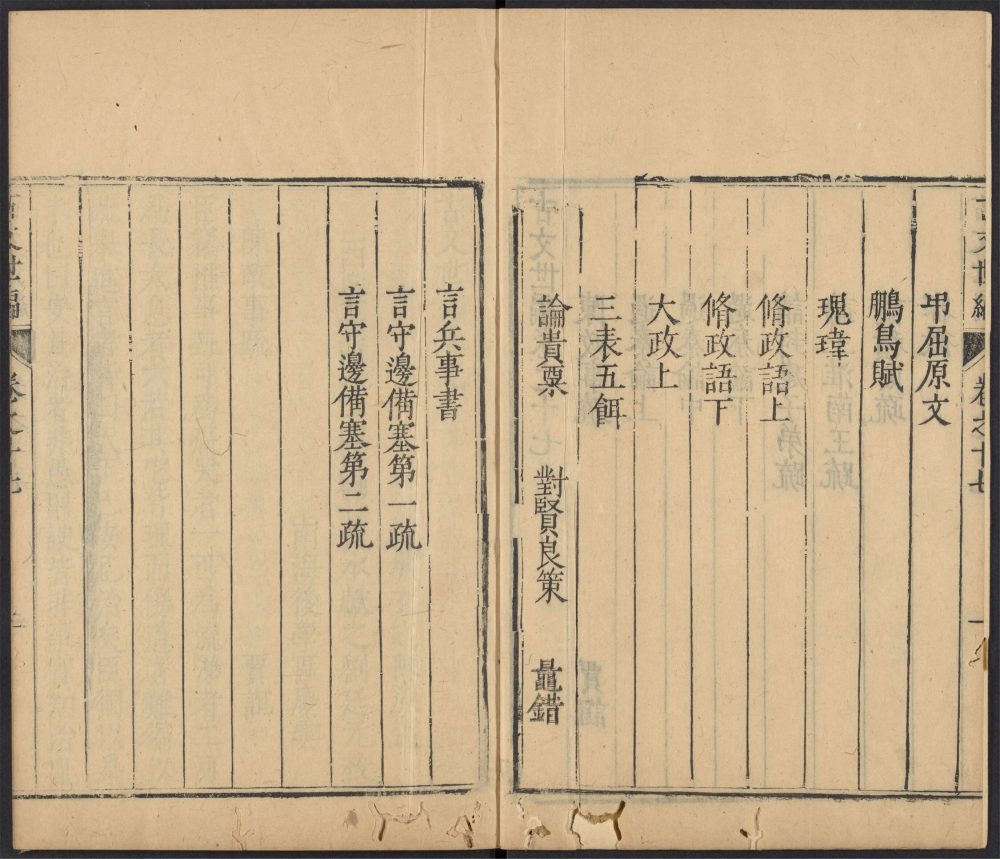 古文世編 卷之十七 一
弔屈原文
鵬鳥賦
瑰瑋
脩政語上
脩政語下
大政上
三表五餌
論貴粟 對賢良策 鼂錯
言兵事書
言守邊備塞第一疏
言守邊備塞第二疏
古文世編 卷之十七